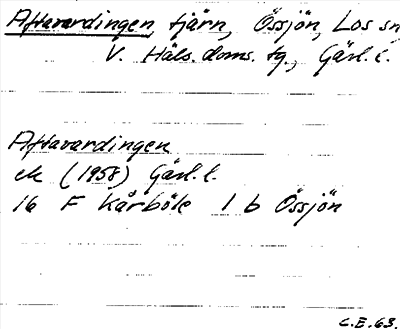 Aftavardingen, tjärn, Össjön, Los sn
V. Häls. doms. tg., Gävl. l.
Aftavardingen
ek (1958) Gävl. l.
16 F Kårböle 1 b Össjön
C.E. 63.